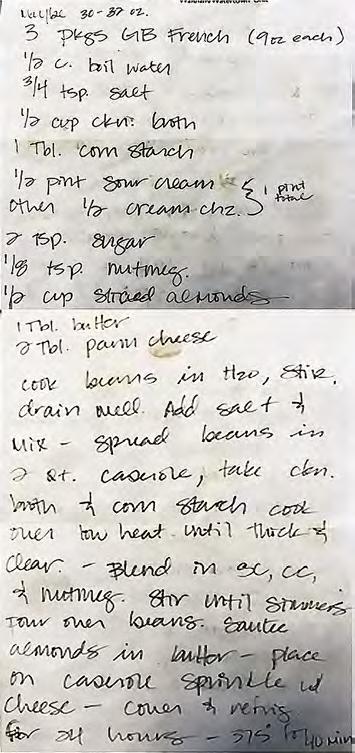 30-32 oz.
3 pkgs GB French (9oz each)
1/2 c. boil water
3/4 tsp. salt
1/2 cup ckn: broth
1 Tbl. corn starch
1/2 pint sour cream } 1 pint total
other 1/2 cream chz.
2 tsp. sugar
1/8 tsp. nutmeg.
1/2 cup sliced almonds
1 Tbl. butter
2 Tbl. parm cheese
cook beans in H2O, stir,
drain well. Add salt &
mix - spread beans in
2 qt. caserole, take ckn.
broth & corn starch cook
over low heat until thick &
clear. - Blend in SC, CC,
& nutmeg. Stir until simmers
Pour over beans. Sautee
almonds in butter - place
on caserole sprinkle w/
cheese - cover & refrig
for 24 hours - 375° for 40 min